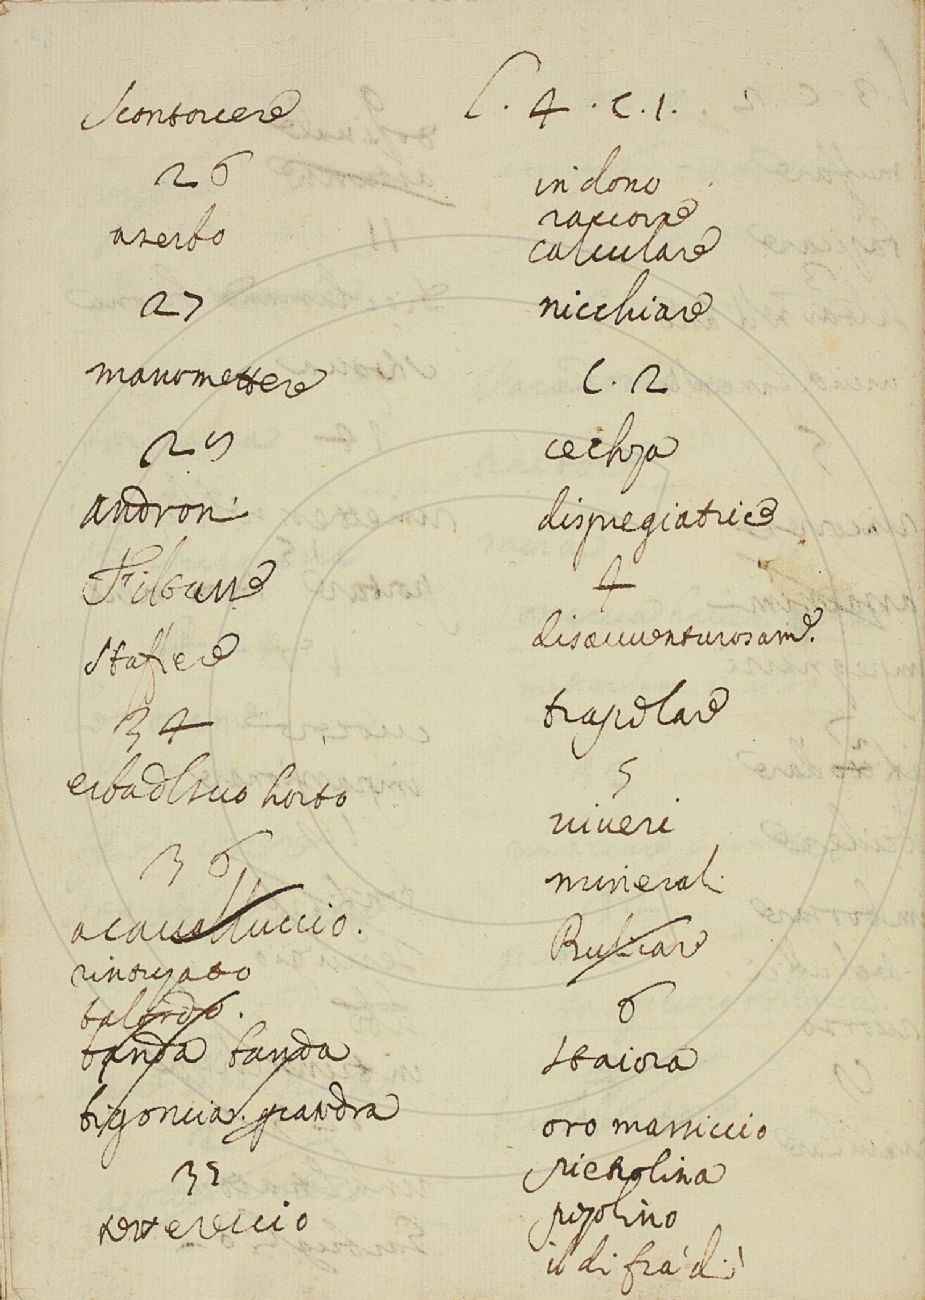 Scontorcere
26
aserbo
27
manomettere
29
androni
staffiere
34
erba dl suo horto
36
acavalluccio.
rintuzato
balordo.
banda banda
bigoncia.
l. 4. c. 1.
in dono
raccorre
calculare
nicchiare
c. 2
dispregiatrice
4
disavventurosame.
trapelare
5
viveri
minerali
6
staiora
oro massiccio
picholina
pizolino
il di frà di